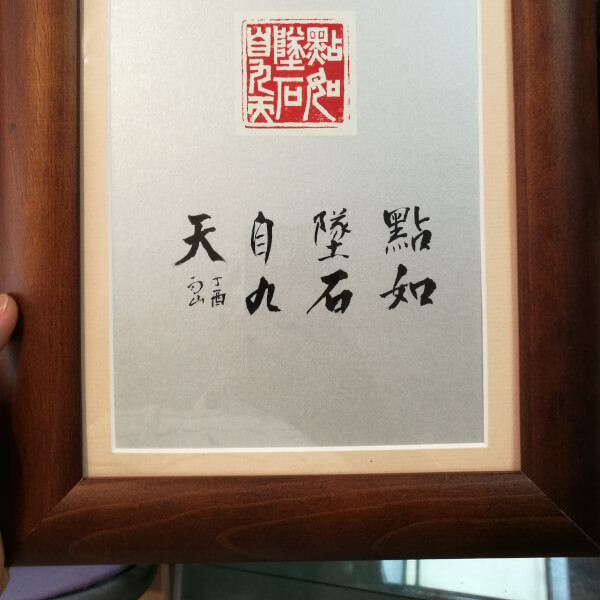 點如
墜石
自九
天
點如
墜石
自九
天
丁酉